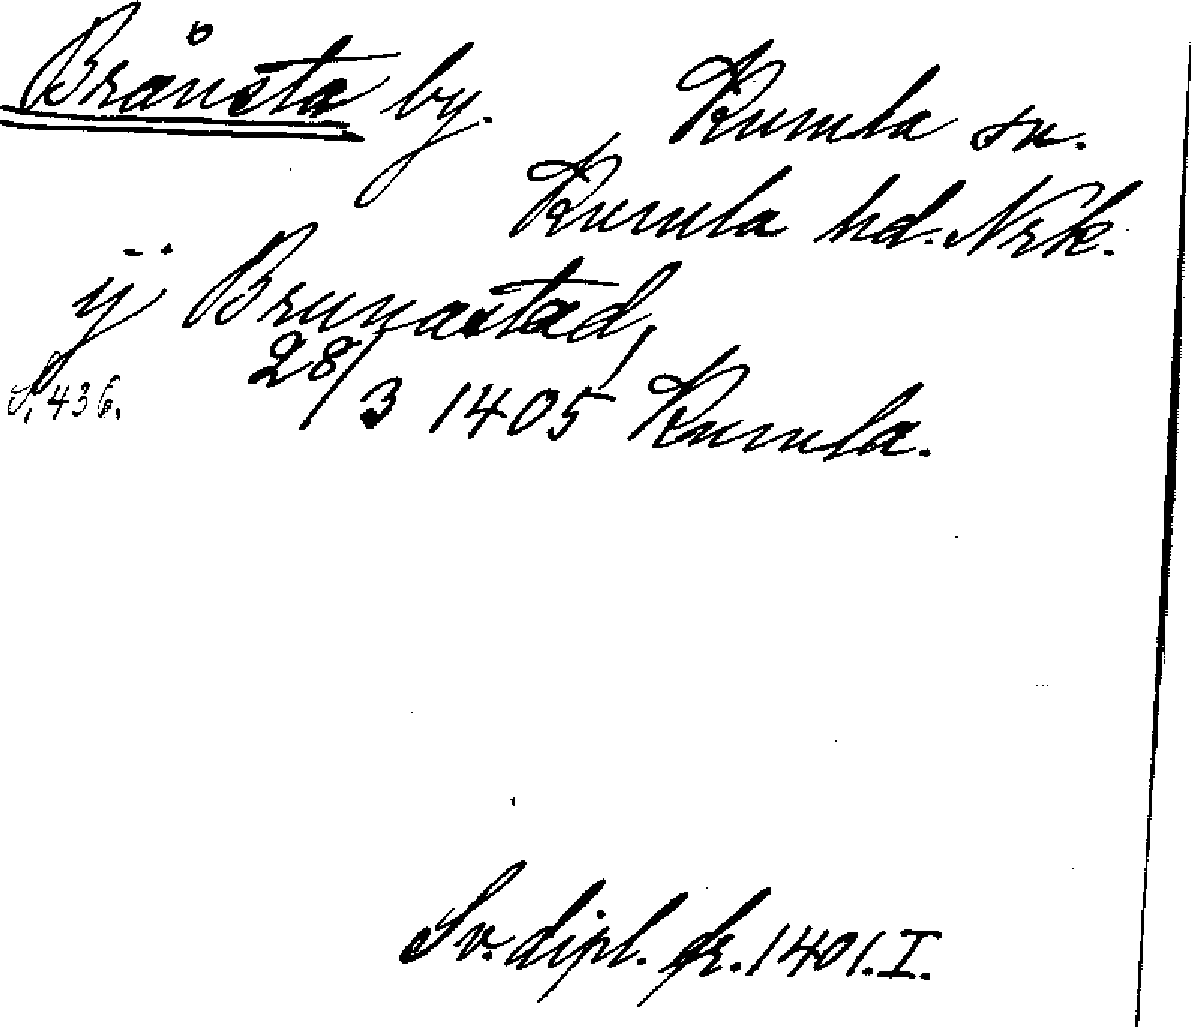 Brånsta by. Kumla sn.
Kumla hd. Nrk.
ÿ Brunastad,
S. 436. 28/3 1405 Kumla.
Sv. dipl. fr. 1401. I.